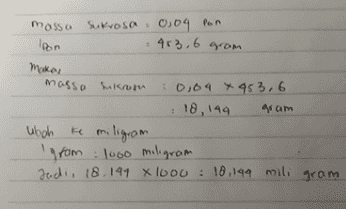 massa sukrosa : 0,04 Pon
1 Pon : 453,6 gram
maka,
massa sukrosa : 0,04 × 453,6
: 18,144 gram
Ubah ke miligram
1 gram : 1000 miligram
Jadi, 18.144 × 1000 : 18,144 mili gram